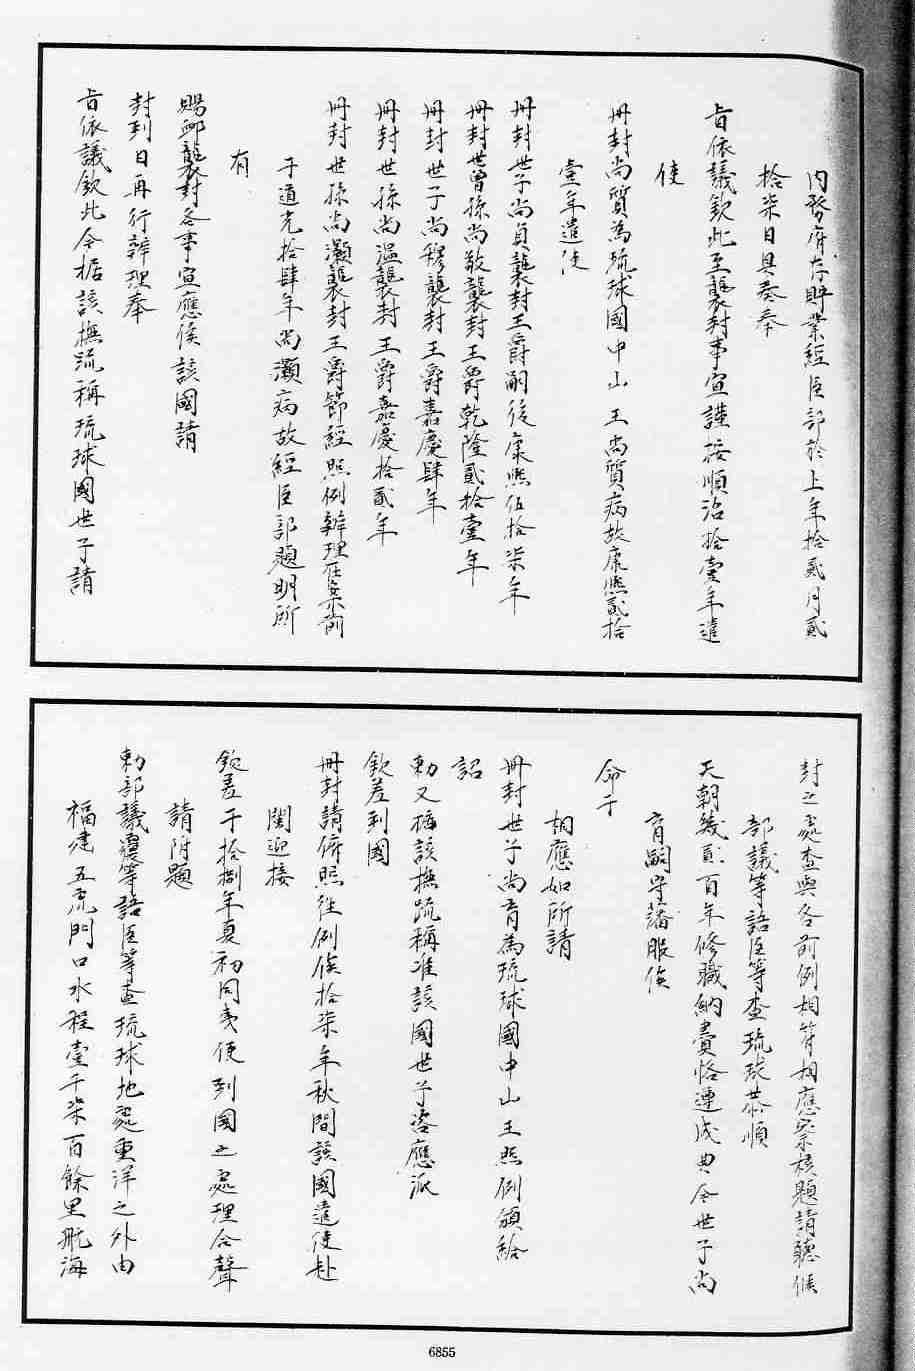 內務府存貯業經臣部於上年拾貳月貳
拾柒日具奏奉
旨依議欽此至襲封事宜謹按順治拾壹年遣
使
冊封尚質為琉球國中山王尚質病故康熙貳拾
壹年遣使
冊封世子尚貞襲封王爵嗣後康熙伍拾柒年
冊封世曾孫尚敬襲封王爵乾隆貳拾壹年
冊封世子尚穆襲封王爵嘉慶肆年
冊封世孫尚溫襲封王爵嘉慶拾貳年
冊封世孫尚灝襲封王爵節經照例辦理在案前
于道光拾肆年尚灝病故經臣部題明所
有
賜卹襲封各事宜應俟該國請
封到日再行辦理奉
旨依議欽此今據該撫疏稱琉球國世子請
封之處查與各前例相符相應察核題請聽候
部議等語臣等查琉球恭順
天朝幾貳百年修職納賮恪遵成典今世子尚
育嗣守藩服俟
命于
相應如所請
冊封世子尚育為琉球國中山王照例頒給
詔
勅又稱該撫疏稱准該國世子咨應派
欽差到國
冊封請俯照往例俟拾柒年秋間該國遣使赴
閩迎接
欽差于拾捌年夏初同夷使到國之處理合聲
請附題
勅部議覆等語臣等查琉球地處重洋之外由
福建五虎門口水程壹千柒百餘里航海
6855